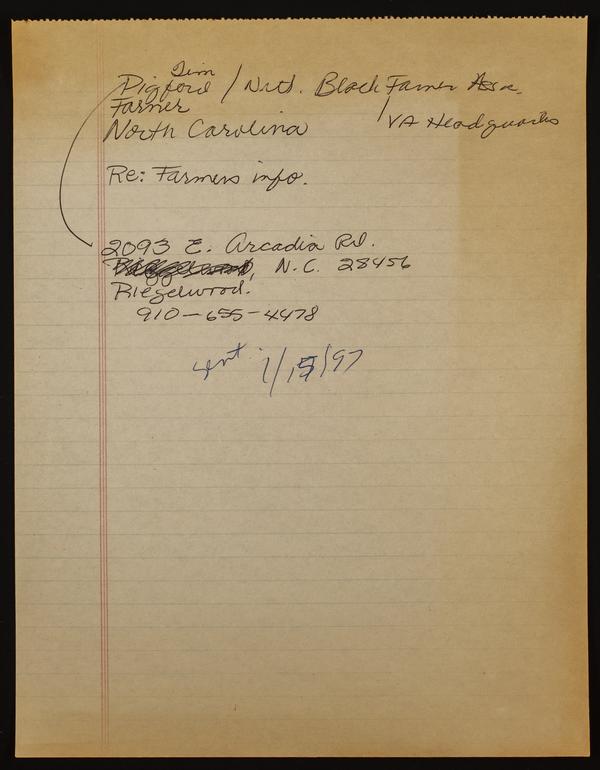 Tim
Pigford / Natl. Black Farmer Assn.
Farmer
North Carolina
VA Headquarters
Re: Farmers info.
2093 E. Arcadia Rd.
N.C. 28456
Riegelwood.
910-655-4478
sent 1/15/97